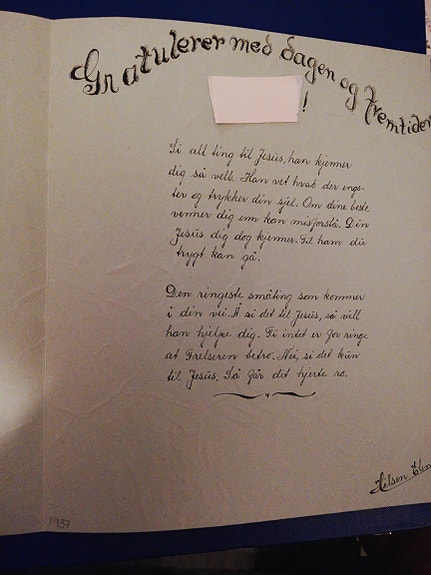 Gratulerer med dagen og fremtiden
!
Si all ting til Jesus, han kjenner
dig så vell. Han vet hvad der engs-
ter og trykker din sjel. Om dine beste
venner dig enn kan misforstå. Din
Jesus dig dog kjenner. Til ham du
trygt kan gå.
Den ringeste småting som kommer
i din vei. Å si det til Jesus, så vill
han hjelpe dig. Ti intet er for ringe
at Frelseren betro. Nei, si det kun
til Jesus, Så får dit hjerte ro.
Hilsen
1937